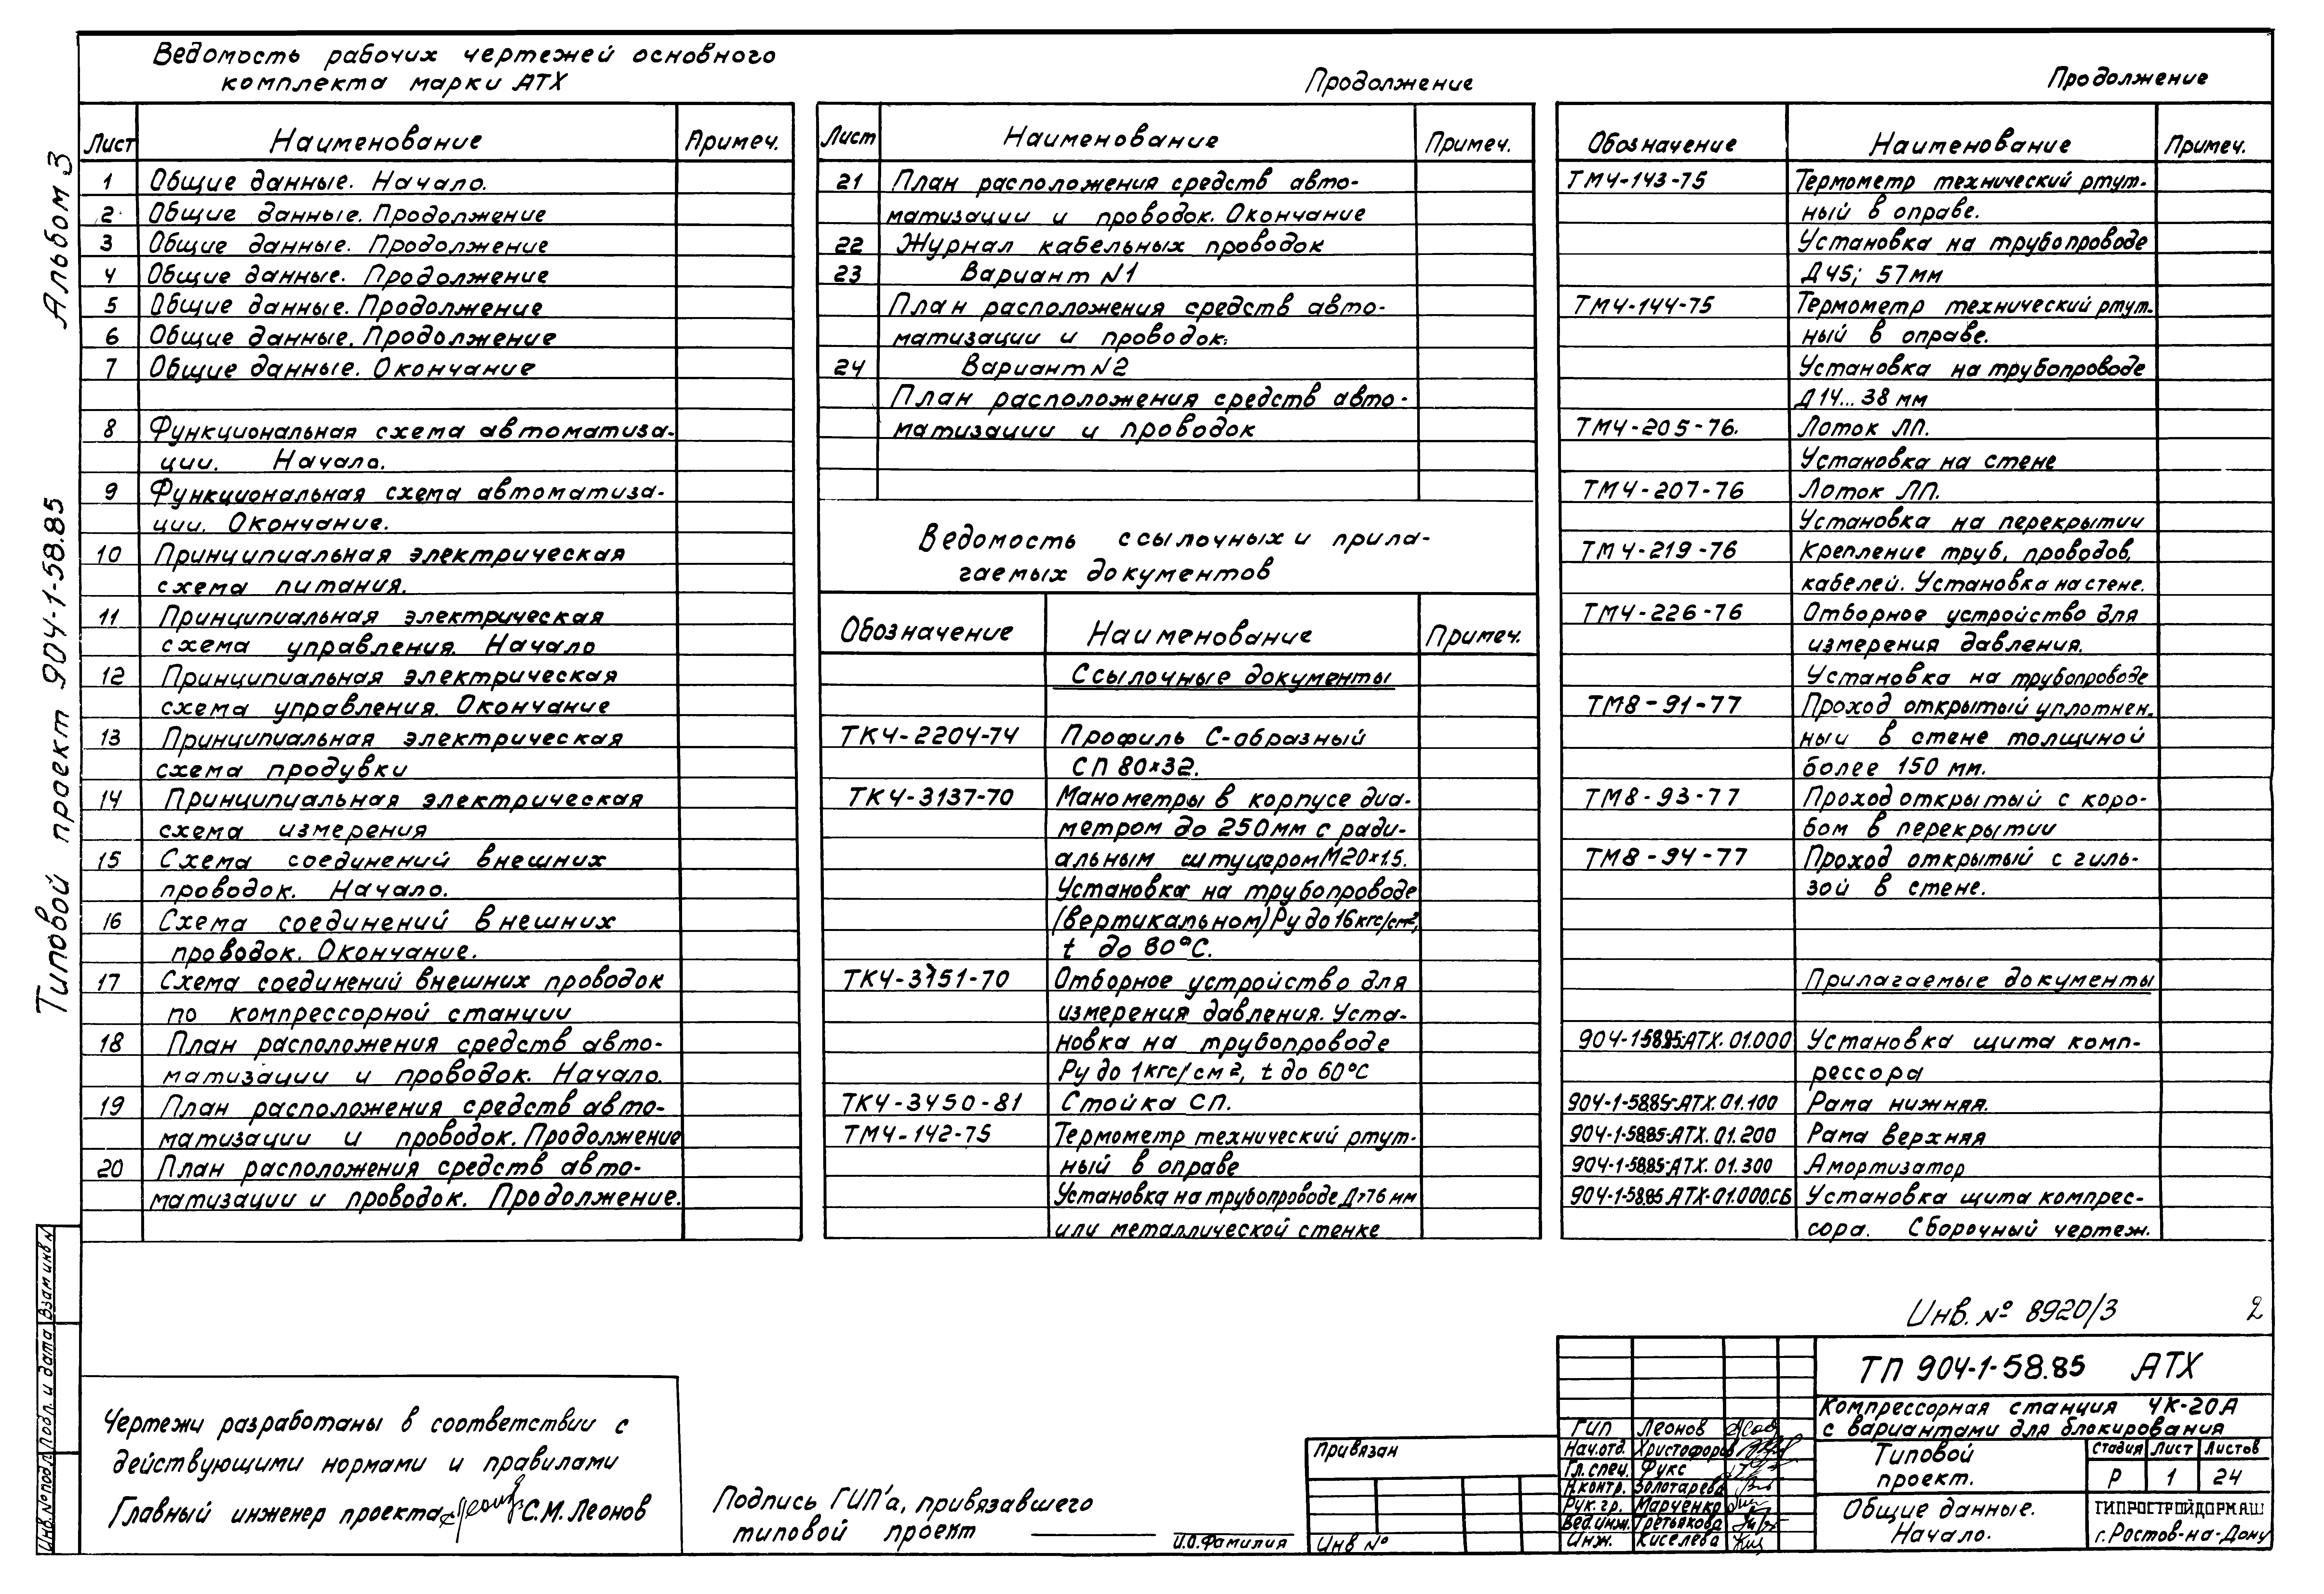 Альбом 3
Типовой проект 904-1-58.85
Ведомость рабочих чертежей основного
комплекта марки АТХ
Лист Наименование Примеч.
1 Общие данные. Начало.
2 Общие данные. Продолжение
3 Общие данные. Продолжение
4 Общие данные. Продолжение
5 Общие данные. Продолжение
6 Общие данные. Продолжение
7 Общие данные. Окончание
8 Функциональная схема автоматиза-
ции. Начало.
9 Функциональная схема автоматиза-
ции. Окончание.
10 Принципиальная электрическая
схема питания.
11 Принципиальная электрическая
схема управления. Начало
12 Принципиальная электрическая
схема управления. Окончание
13 Принципиальная электрическая
схема продувки
14 Принципиальная электрическая
схема измерения
15 Схема соединений внешних
проводок. Начало.
16 Схема соединений внешних
проводок. Окончание.
17 Схема соединений внешних проводок
по компрессорной станции
18 План расположения средств авто-
матизации и проводок. Начало.
19 План расположения средств авто-
матизации и проводок. Продолжение
20 План расположения средств авто-
матизации и проводок. Продолжение.
Продолжение
Лист Наименование Примеч.
21 План расположения средств авто-
матизации и проводок. Окончание
22 Журнал кабельных проводок
23 Вариант N1
План расположения средств авто-
матизации и проводок.
24 Вариант N2
План расположения средств авто-
матизации и проводок
Ведомость ссылочных и прила-
гаемых документов
Обозначение Наименование Примеч.
Ссылочные документы
ТК4-2204-74 Профиль С-образный
СП 80×32.
ТК4-3137-70 Манометры в корпусе диа-
метром до 250мм с ради-
альным штуцером М20×1.5.
Установка на трубопроводе
(вертикальном) Ру до 16кгс/см²,
t до 80°С.
ТК4-3151-70 Отборное устройство для
измерения давления. Уста-
новка на трубопроводе
Ру до 1кгс/см², t до 60°С
ТК4-3450-81 Стойка СП.
ТМ4-142-75 Термометр технический ртут-
ный в оправе
Установка на трубопроводе Д>76 мм
или металлической стенке
Продолжение
Обозначение Наименование Примеч.
ТМ4-143-75 Термометр технический ртут-
ный в оправе.
Установка на трубопроводе
Д 45; 57мм
ТМ4-144-75 Термометр технический ртут-
ный в оправе.
Установка на трубопроводе
Д 14...38 мм
ТМ4-205-76. Лоток ЛП.
Установка на стене
ТМ4-207-76 Лоток ЛП.
Установка на перекрытии
ТМ4-219-76 Крепление труб, проводов,
кабелей. Установка на стене.
ТМ4-226-76 Отборное устройство для
измерения давления.
Установка на трубопроводе
ТМ8-91-77 Проход открытый уплотнен.
ный в стене толщиной
более 150 мм.
ТМ8-93-77 Проход открытый с коро-
бом в перекрытии
ТМ8-94-77 Проход открытый с гиль-
зой в стене.
Прилагаемые документы
904-1-58.85-АТХ.01.000 Установка щита комп-
рессора
904-1-58.85-АТХ.01.100 Рама нижняя.
904-1-58.85-АТХ.01.200 Рама верхняя
904-1-58.85-АТХ.01.300 Амортизатор
904-1-58.85 АТХ-01.000.СБ Установка щита компрес-
сора. Сборочный чертеж.
Инв. № 8920/3 2
Взам инв N
Подп. и дата
Инв.№подл
Чертежи разработаны в соответствии с
действующими нормами и правилами
Главный инженер проекта С.М. Леонов
Подпись ГИП'а, привязавшего
типовой проект
И.О. Фамилия
Привязан
Инв №
ТП 904-1-58.85 АТХ
Компрессорная станция 4К-20А
с вариантами для блокирования
ГИП Леонов
Нач.отд. Христофоров
Гл.спец. Фукс
Н.контр. Золотарева
Рук.гр. Марченко
Вед.инж. Третьякова
Инж. Киселева
Типовой
проект.
Стадия Лист Листов
Р 1 24
Общие данные.
Начало.
ГИПРОСТРОЙДОРМАШ
г.Ростов-на-Дону